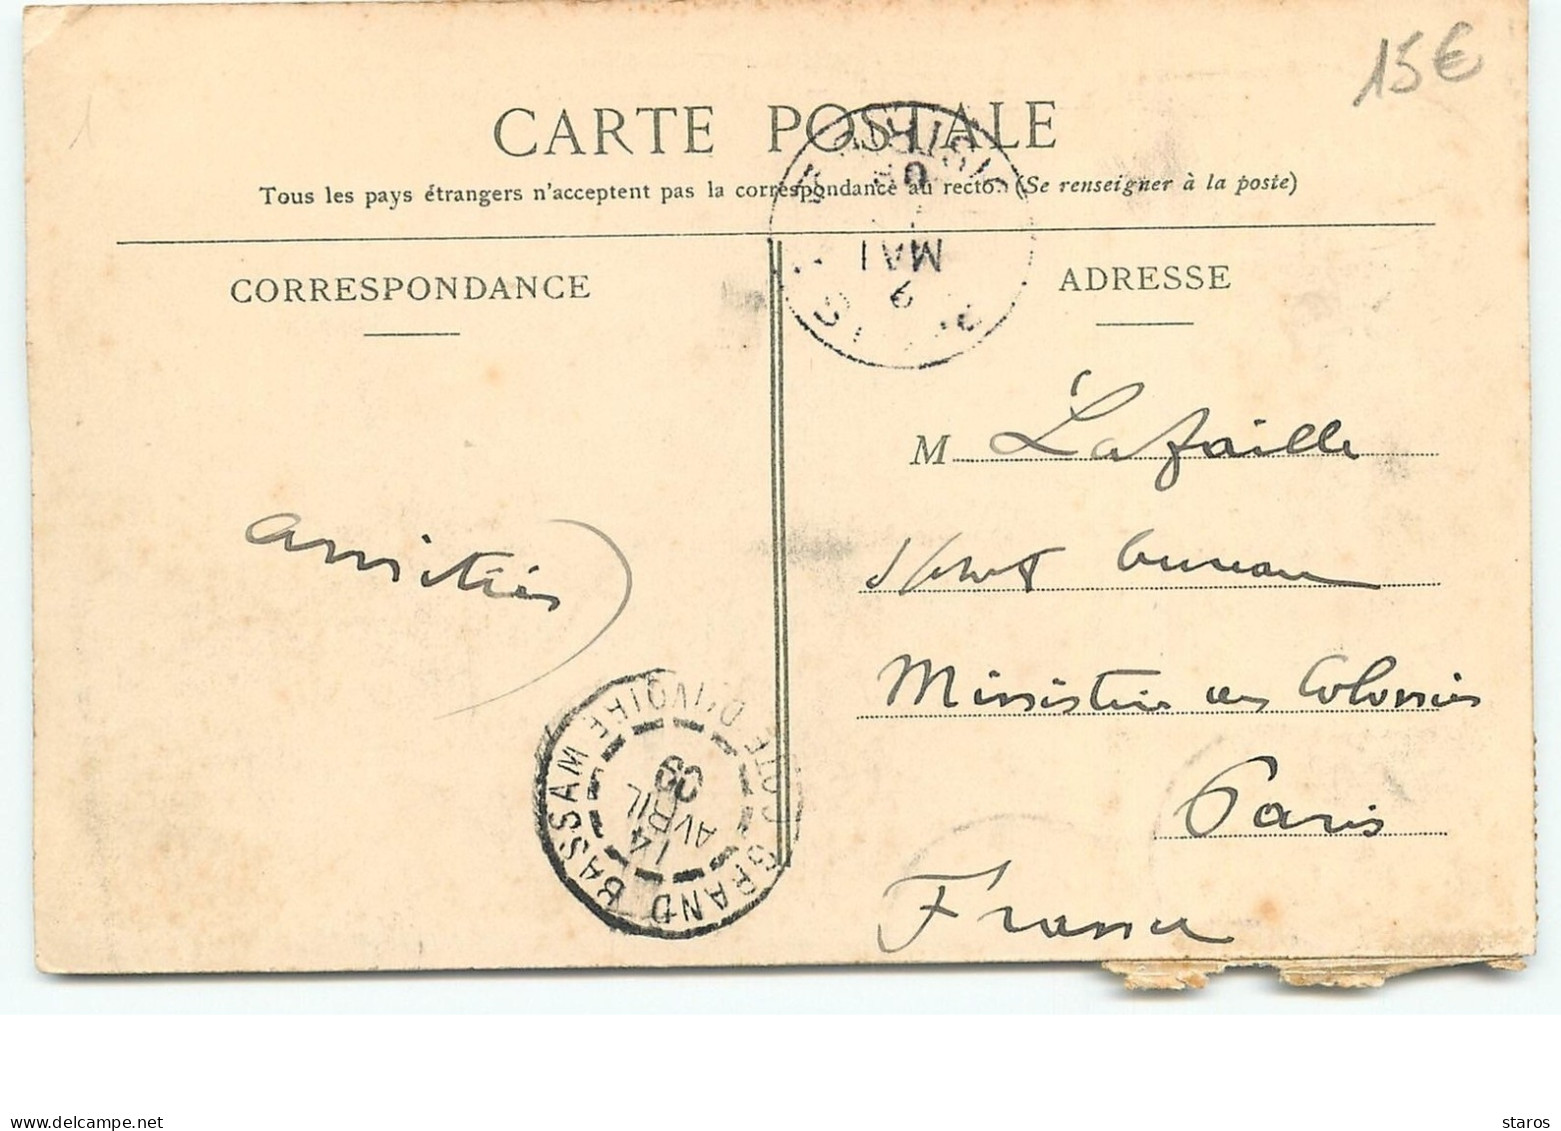 15€
CARTE POSTALE
Tous les pays étrangers n'acceptent pas la correspondance au recto. (Se renseigner à la poste)
CORRESPONDANCE
ADRESSE
MAI
M Lafaille
bureau
Ministère des Colonies
Paris
France
amitiés
GRAND BASSAM
COTE D'IVOIRE
14
AVRIL
09
delcampe.net
staros